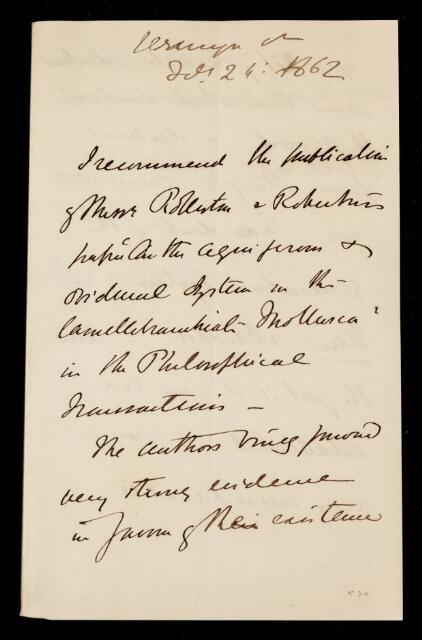 Jermyn St
Feb 24: 1862
I recommend the publication
of Messrs Rolleston & Robertson's
paper On the aquiferous &
oviducal System in the
Lamellibranchiate Mollusca"
in the Philosophical
Transactions –
The authors bring forward
very strong evidence
in favour of their existence